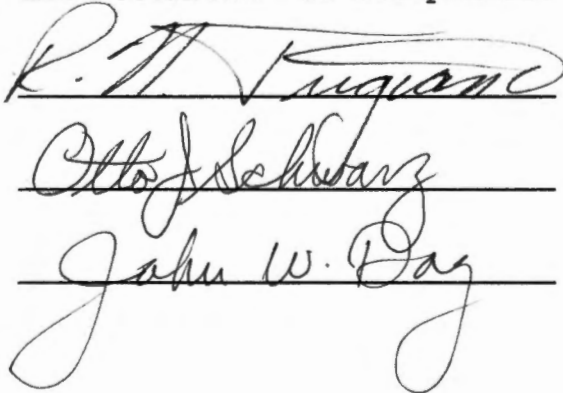 R. N. Trigiano
Otto J. Schwarz
John W. Day